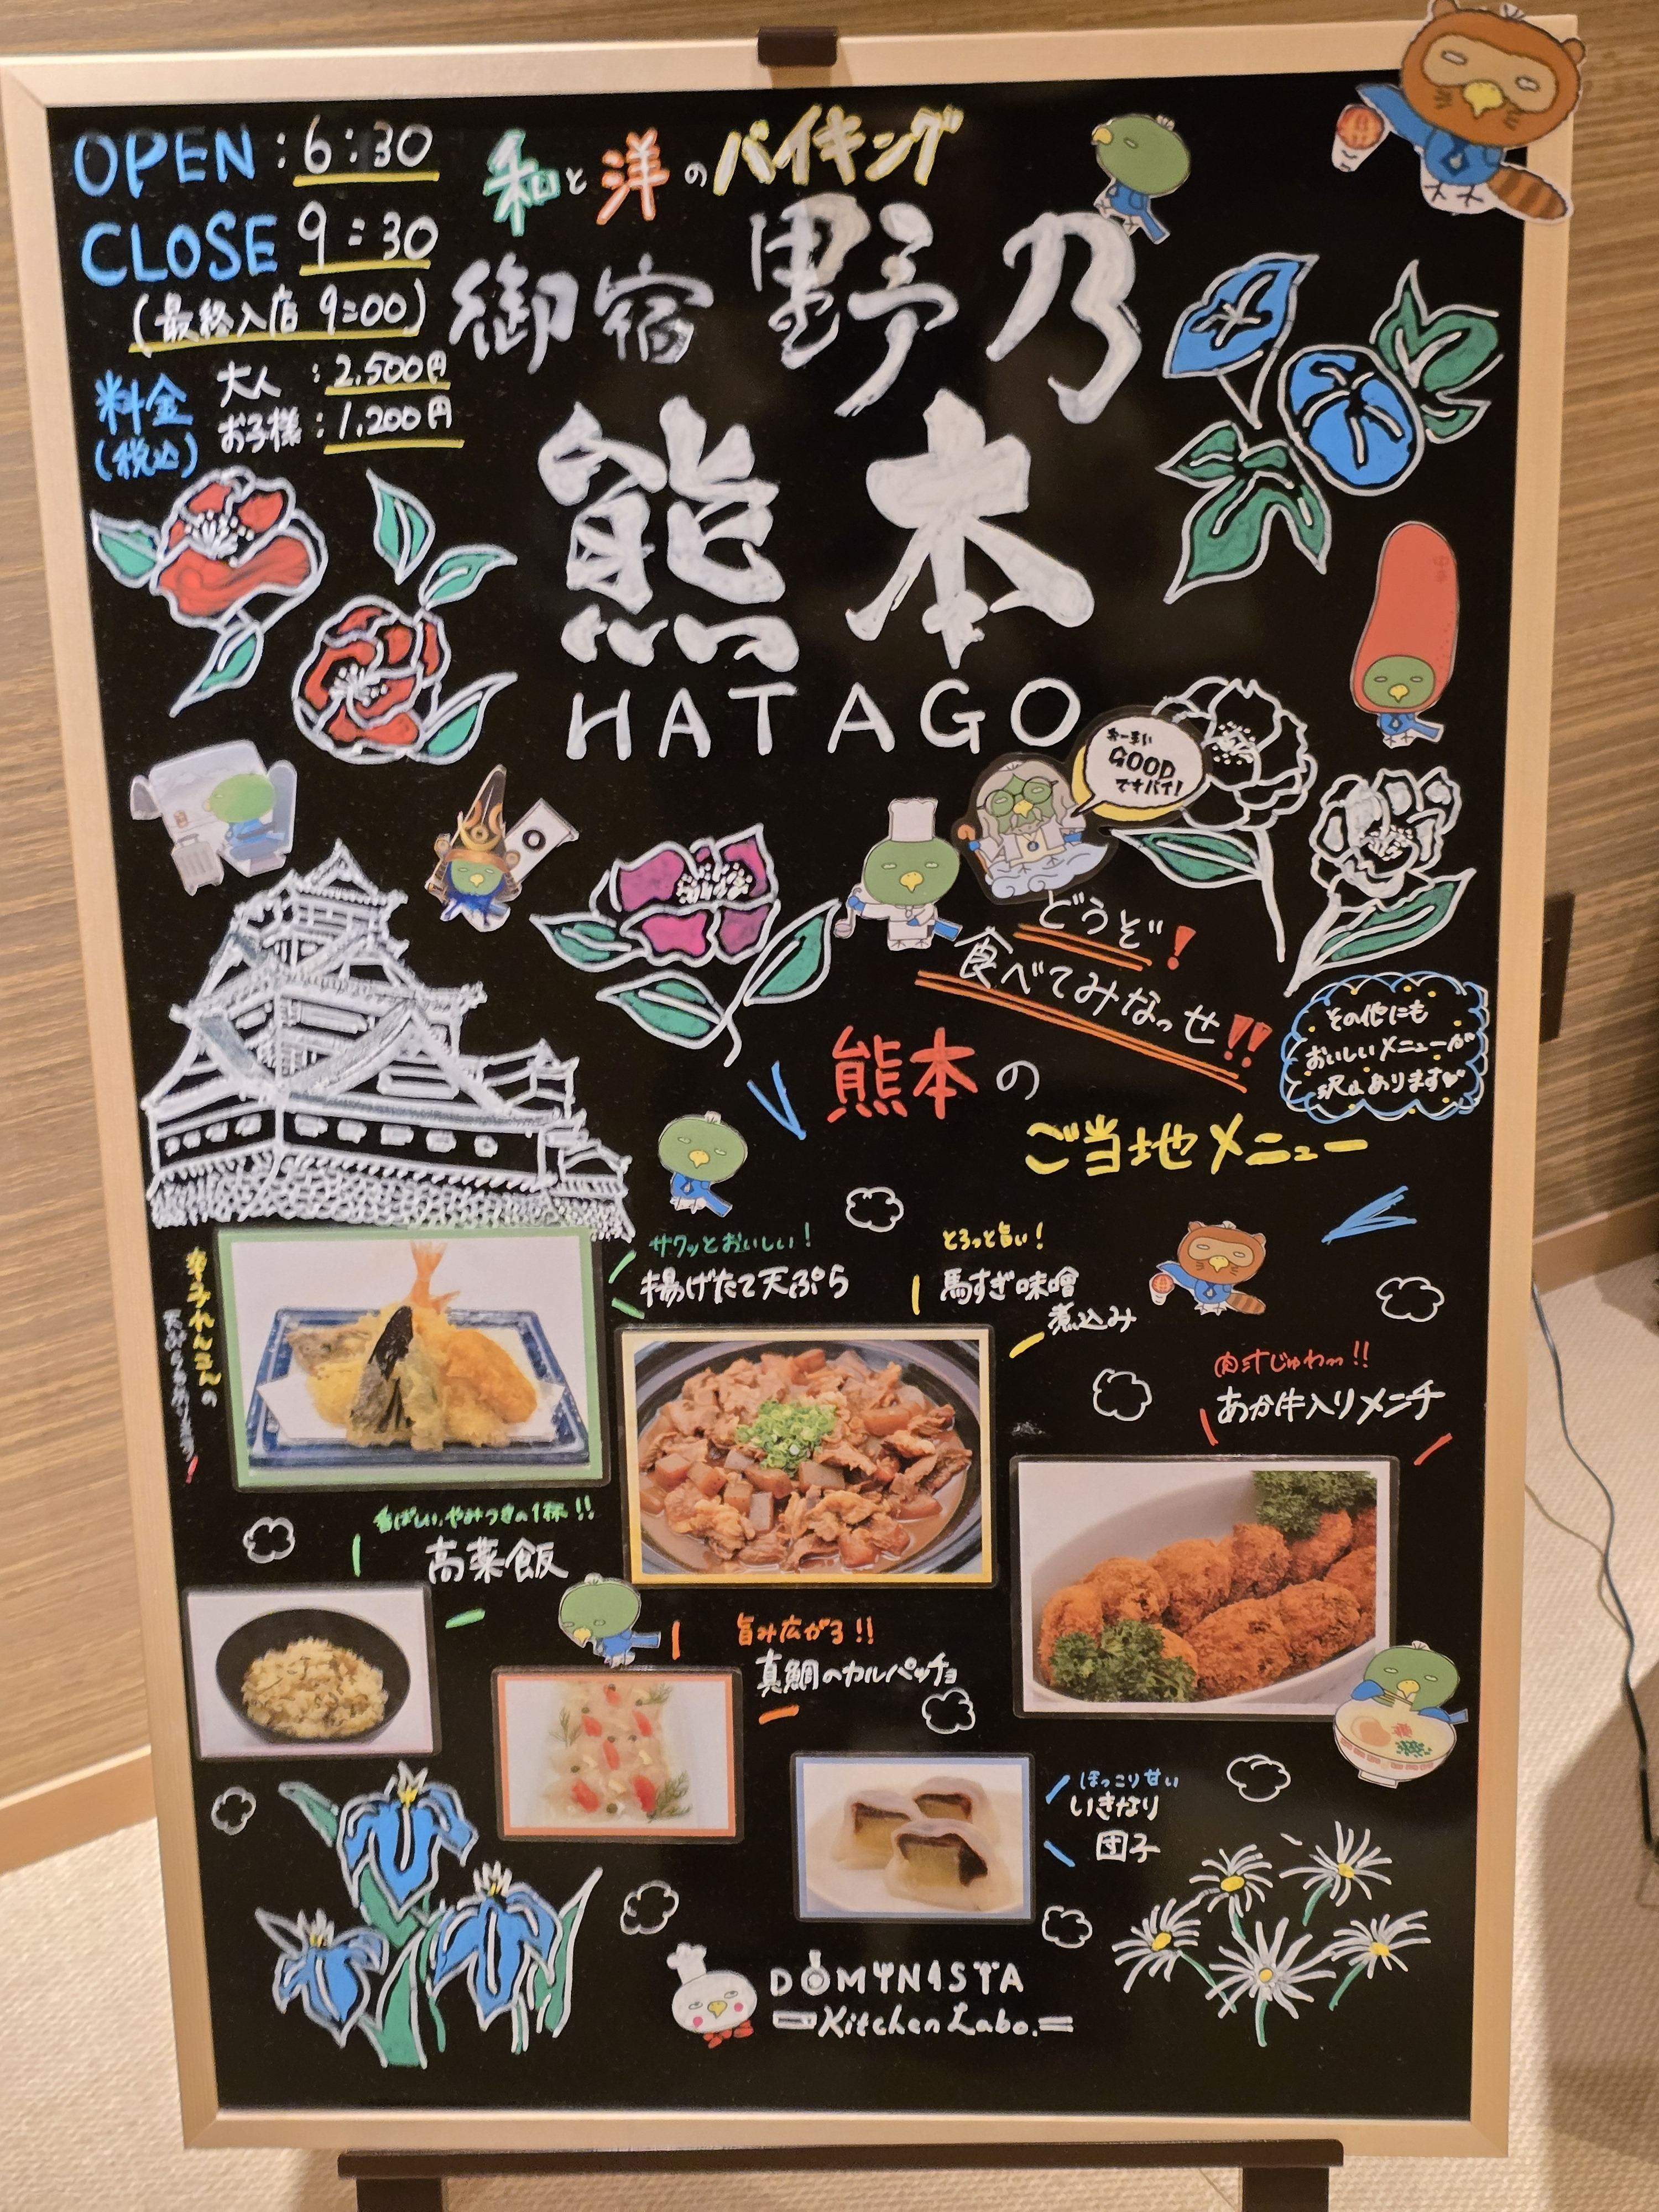 OPEN : 6:30
CLOSE 9:30
(最終入店 9:00)
料金
(税込)
大人 : 2,500円
お子様 : 1,200円
和と洋のバイキング
御宿 野乃
熊本
HATAGO
うーまい
GOOD
ですバイ!
どうぞ!
食べてみなっせ!!
その他にも
おいしいメニューが
沢山あります
熊本の
ご当地メニュー
辛子れんこんの
天ぷらもあります!
サクッとおいしい!
揚げたて天ぷら
とろっと旨い!
馬すぎ味噌
煮込み
肉汁じゅわ〜!!
あか牛入りメンチ
香ばしい、やみつきの1杯!!
高菜飯
旨み広がる!!
真鯛のカルパッチョ
ほっこり甘い
いきなり
団子
DOMINISTA
Kitchen Labo.